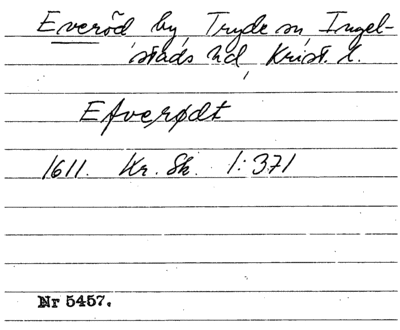 Everöd by, Tryde sn, Ingel-
stads hd, Krist. l.
Efverødt
1611. Kr. Sk. 1:371
Nr 5457.